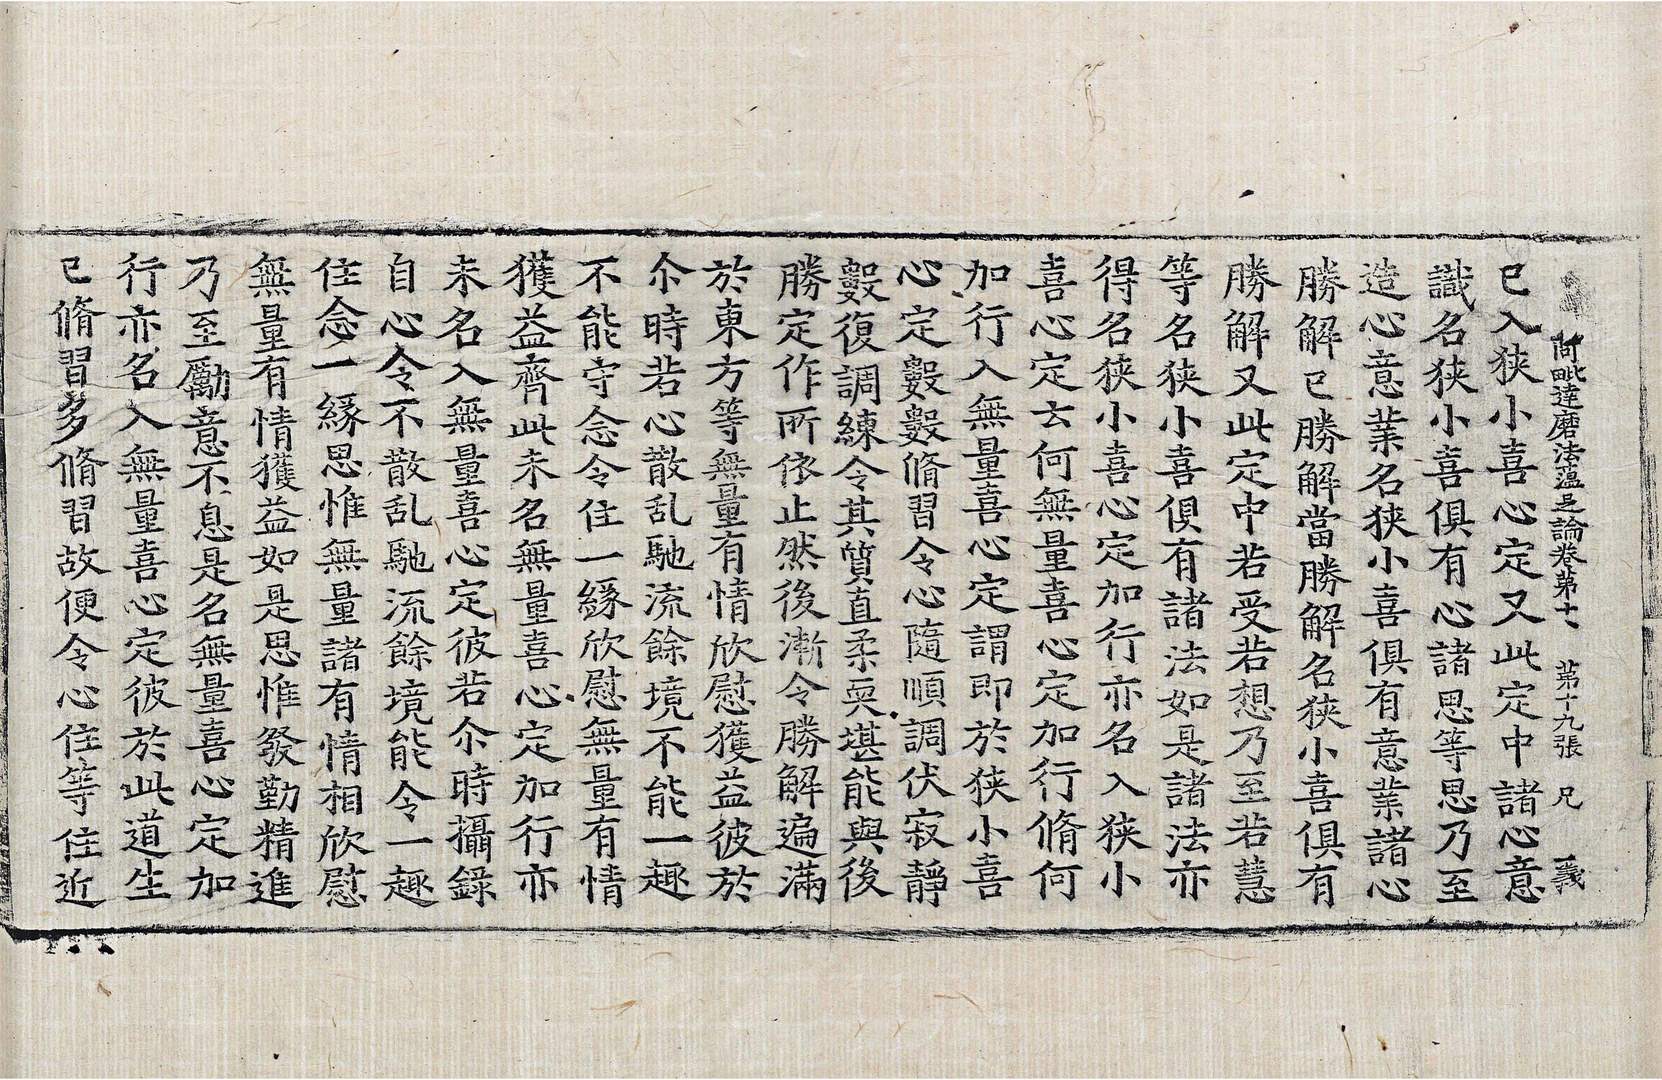 阿毗達磨法蘊足論卷第七　第十九張　尺　義
已入狹小喜心定又此定中諸心意
識名狹小喜俱有心諸思等思乃至
造心意業名狹小喜俱有意業諸心
勝解已勝解當勝解名狹小喜俱有
勝解又此定中若受若想乃至若慧
等名狹小喜俱有諸法如是諸法亦
得名狹小喜心定加行亦名入狹小
喜心定云何無量喜心定加行脩何
加行入無量喜心定謂即於狹小喜
心定數數脩習令心隨順調伏寂靜
數復調練令其質直柔耎堪能與後
勝定作所依止然後漸令勝解遍滿
於東方等無量有情欣慰獲益彼於
尒時若心散乱馳流餘境不能一趣
不能守念令住一緣欣慰無量有情
獲益齊此未名無量喜心定加行亦
未名入無量喜心定彼若尒時攝錄
自心令不散乱馳流餘境能令一趣
住念一緣思惟無量諸有情相欣慰
無量有情獲益如是思惟發勤精進
乃至勵意不息是名無量喜心定加
行亦名入無量喜心定彼於此道生
已脩習多脩習故便令心住等住近